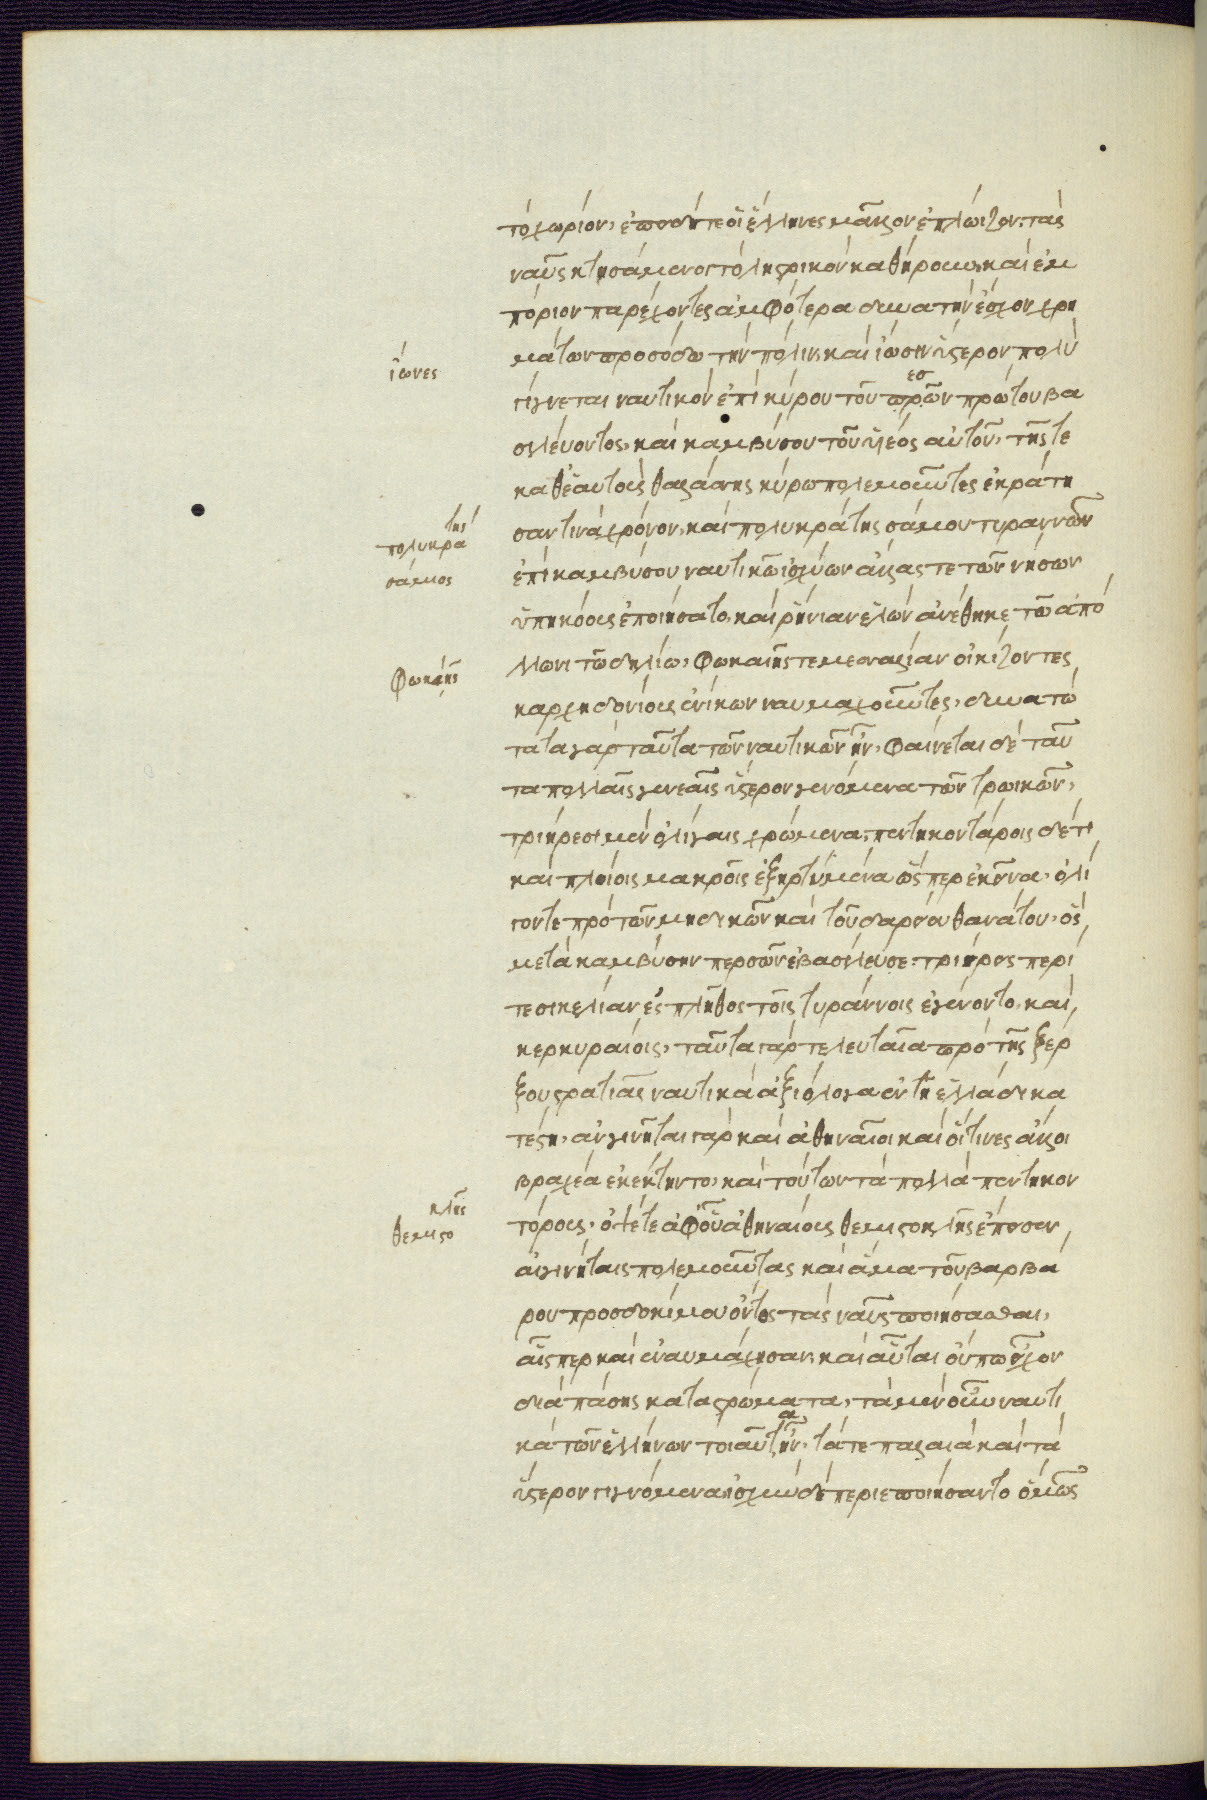 τὸ χωρίον, ἐπειδή τε οἱ ἕλληνες μᾶλλον ἐπλώιζον. τὰς
ναῦς κτησάμενοι τὸ ληστρικὸν καθήρουν, καὶ ἐμ
πόριον παρέχοντες ἀμφότερα δυνατὴν ἔσχον χρη
μάτων προσόδω τὴν πόλιν, καὶ ἴωσιν ὕστερον πολὺ
ἴωνες
γίγνεται ναυτικὸν ἐπὶ κύρου τοῦ περσῶν πρώτου βα
σιλέυοντος, καὶ καμβύσου τοῦ υἱέος αὐτοῦ, τῆς τε
καθ' ἑαυτοὺς θαλάσσης κύρω πολεμοῦντες ἐκράτη
σάν τινα χρόνον, καὶ πολυκράτης σάμου τυραννῶν
πολυκράτης
ἐπὶ καμβύσου ναυτικῶ ἰσχύων ἄλλας τε τῶν νήσων
σάμιος
ὑπηκόους ἐποιήσατο, καὶ ῥήνιαν ἑλὼν ἀνέθηκε τῶ ἀπό
λλωνι τῶ δηλίω, φωκαῆς τε μεσσαλίαν οἰκίζοντες
φωκάης
καρχηδονίους ἐνίκων ναυμαχοῦντες, δυνατώ
τατα γὰρ ταῦτα τῶν ναυτικῶν ἦν, φαίνεται δὲ ταῦ
τα πολλαῖς γενεαῖς ὕστερον γενόμενα τῶν τρωικῶν,
τριήρεσι μὲν ὀλίγαις χρώμενα, πεντηκοντόροις δ' ἔτι
καὶ πλοίοις μακροῖς ἐξηρτυμένα ὥσπερ ἐκεῖνα, ὀλί
γον τε πρὸ τῶν μηδικῶν καὶ τοῦ δαρείου θανάτου, ὃς
μετὰ καμβύσην περσῶν ἐβασίλευσε, τριήρεις περί
τε σικελίαν ἐς πλῆθος τοῖς τυράννοις ἐγένοντο, καὶ
κερκυραίοις, ταῦτα γὰρ τελευταῖα πρὸ τῆς ξέρ
ξου στρατιᾶς ναυτικὰ ἀξιόλογα ἐν τῆ ἑλλάδι κα
τέστη, αἰγινῆται γὰρ καὶ ἀθηναῖοι καὶ οἵτινες ἄλλοι
βραχέα ἐκέκτηντο, καὶ τούτων τὰ πολλὰ πεντηκον
τόρους, ὀψέ τε ἀφ' οὗ ἀθηναίους θεμιστοκλῆς ἔπεισεν
θεμιστοκλῆς
αἰγινήταις πολεμοῦντας καὶ ἅμα τοῦ βαρβά
ρου προσδοκίμου ὄντος τὰς ναῦς ποιήσασθαι,
αἷσπερ καὶ ἐναυμάχησαν, καὶ αὗται οὔπω εἶχον
διὰ πάσης καταστρώματα, τὰ μὲν οὖν ναυτι
κὰ τῶν ἑλλήνων τοιαῦτα ἦν, τά τε παλαιὰ καὶ τὰ
ὕστερον γιγνόμενα, ἰσχὺν δὲ περιεποιήσαντο ὅμως